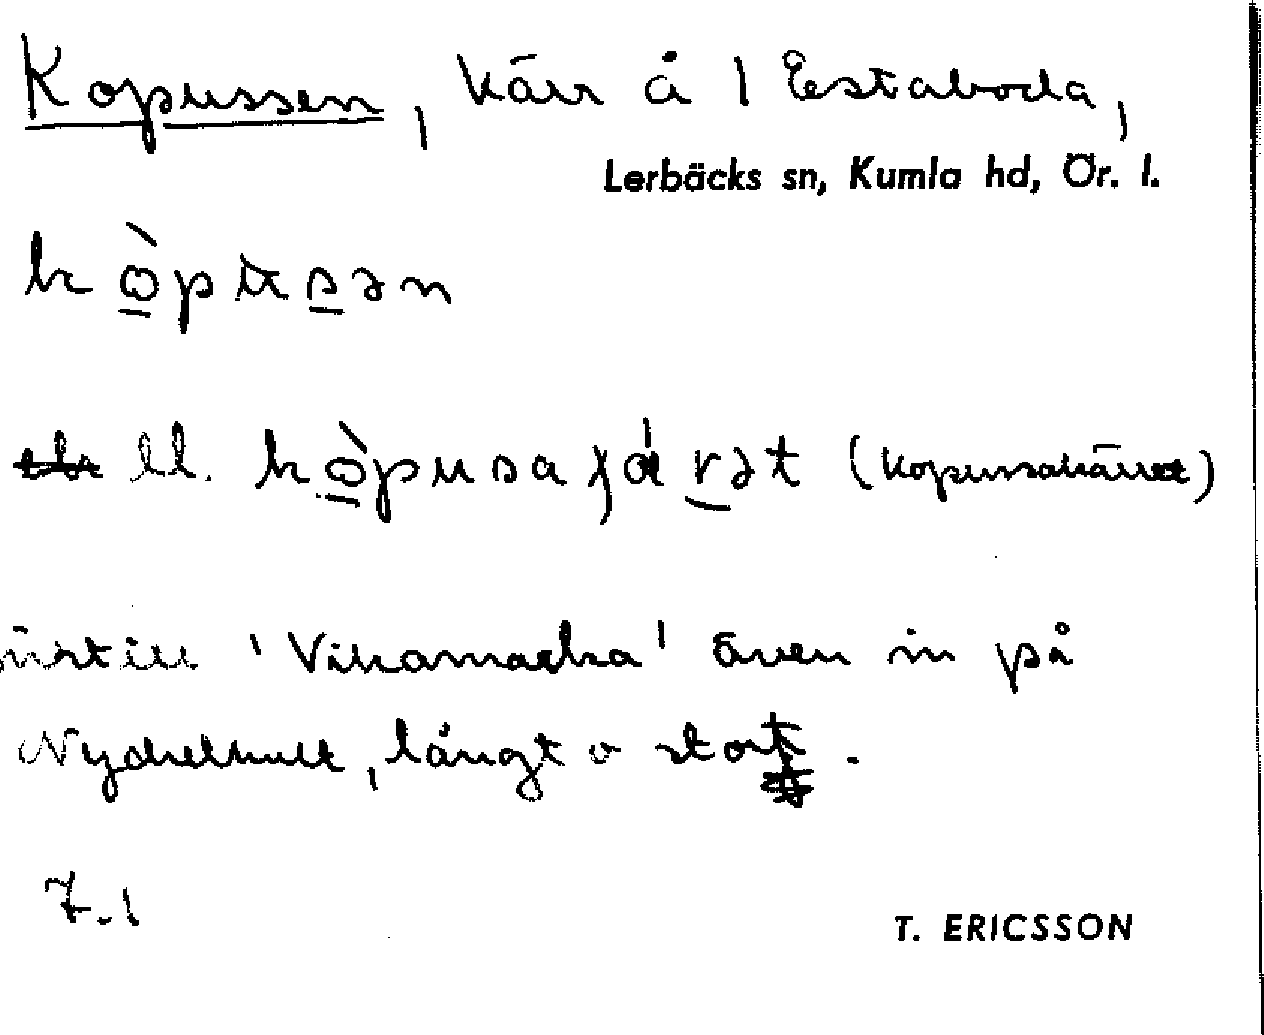 Kopussen, kärr å 1 Estaboda,
Lerbäcks sn, Kumla hd, Ör. l.
kòpusən
ll. kòpusaɟárət (Kopussakärret)
'Vikamacka' även in på
Nyckelhult, långt o stort.
7.1
T. ERICSSON